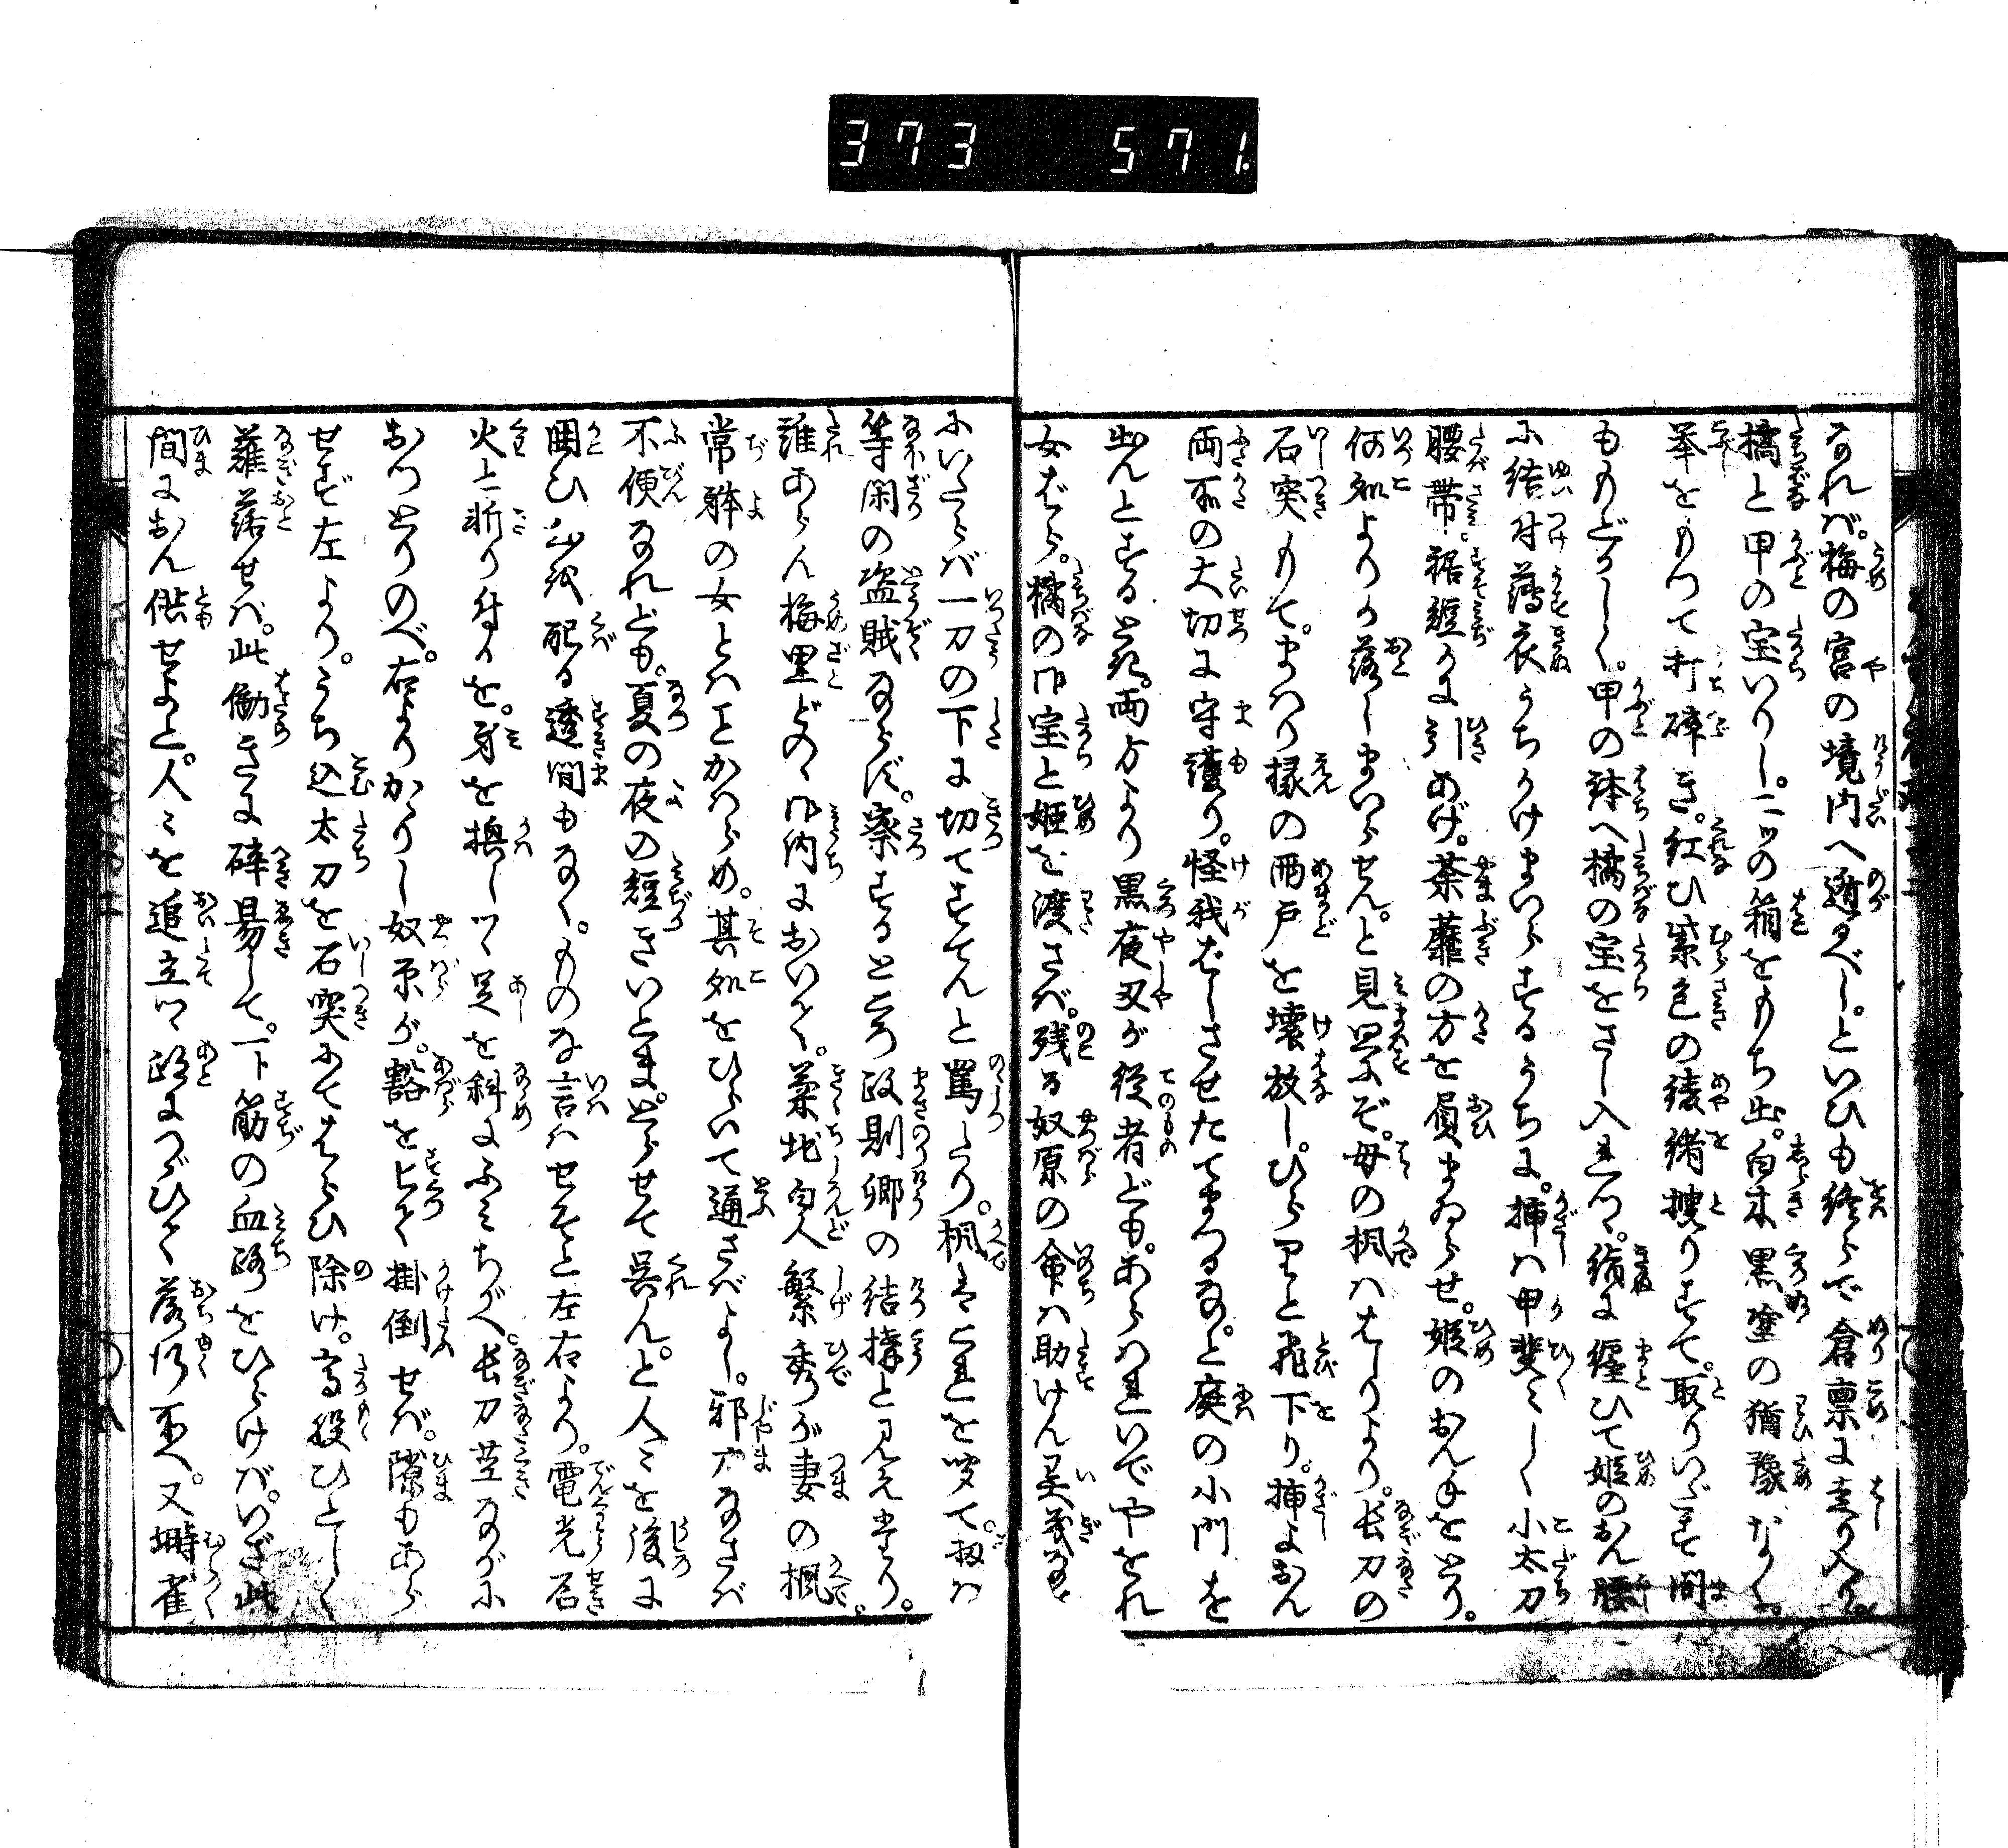 373 571.
なれバ。梅の宮の境内へ遁るべし。といひも終らで倉廩に走り入り。
橘と甲の宝いりし。二ッの箱をもち出。白木黒塗の猶豫なく。
拳をもつて打碎き。紅ひ紫色の綾緒搜りすて。取りいだす間
ももどかしく。甲の鉢へ橘の宝をさし入れつゝ。絹に纏ひて姫のおん腰
に結付薄衣うちかけまゐらするうちに。挿ハ甲斐〳〵しく小太刀
腰帯。裾短かに引あげ。荼蘼の方を屓まゐらせ。姫のおん手をとり。
何処よりか落しまいらせん。と見界ぞ。母の楓ハはしりより。長刀の
石突もて。まハり縁の雨戸を壊放し。ひらりと飛下り。挿よおん
両所の大切に守護り。怪我ばしさせたてまつるな。と庭の小門を
出んとする比。両方より黒夜叉が従者ども。あらハれいでやをれ
女ばら。橘の御宝と姫を渡さバ。残る奴原の命ハ助けん異義な
にいたらバ一刀の下に切てすてんと罵たり。楓これを聞て。扨ハ
等閑の盗賊ならず。察するところ政則卿の結搆と見えたり。
誰あらん梅里どのゝ御内において。菊地自人繁秀が妻の楓。
常躰の女とハことかハらめ。其処をひらいて通さバよし。邪广なさバ
不便なれども。夏の夜の短きいとま。とらせて呉ん。と人〻を後に
囲ひ心を配る透間もなく。ものな言ハせそと左右より。電光石
火と斫り付るを。身を換しつゝ足を斜にふみちがへ。長刀茎ながに
おつとりのべ。右よりかゝりし奴原が。豁をとく掛倒せバ。隙もあら
せず左より。うち込太刀を石突にてはらひ除け。高股ひとしく
薙落せバ。此働きに碎易して。一ト筋の血路をひらけバ。いざ此
間におん供せよと。人〻を追立つゝ路につゞひて落行所へ。又塒雀